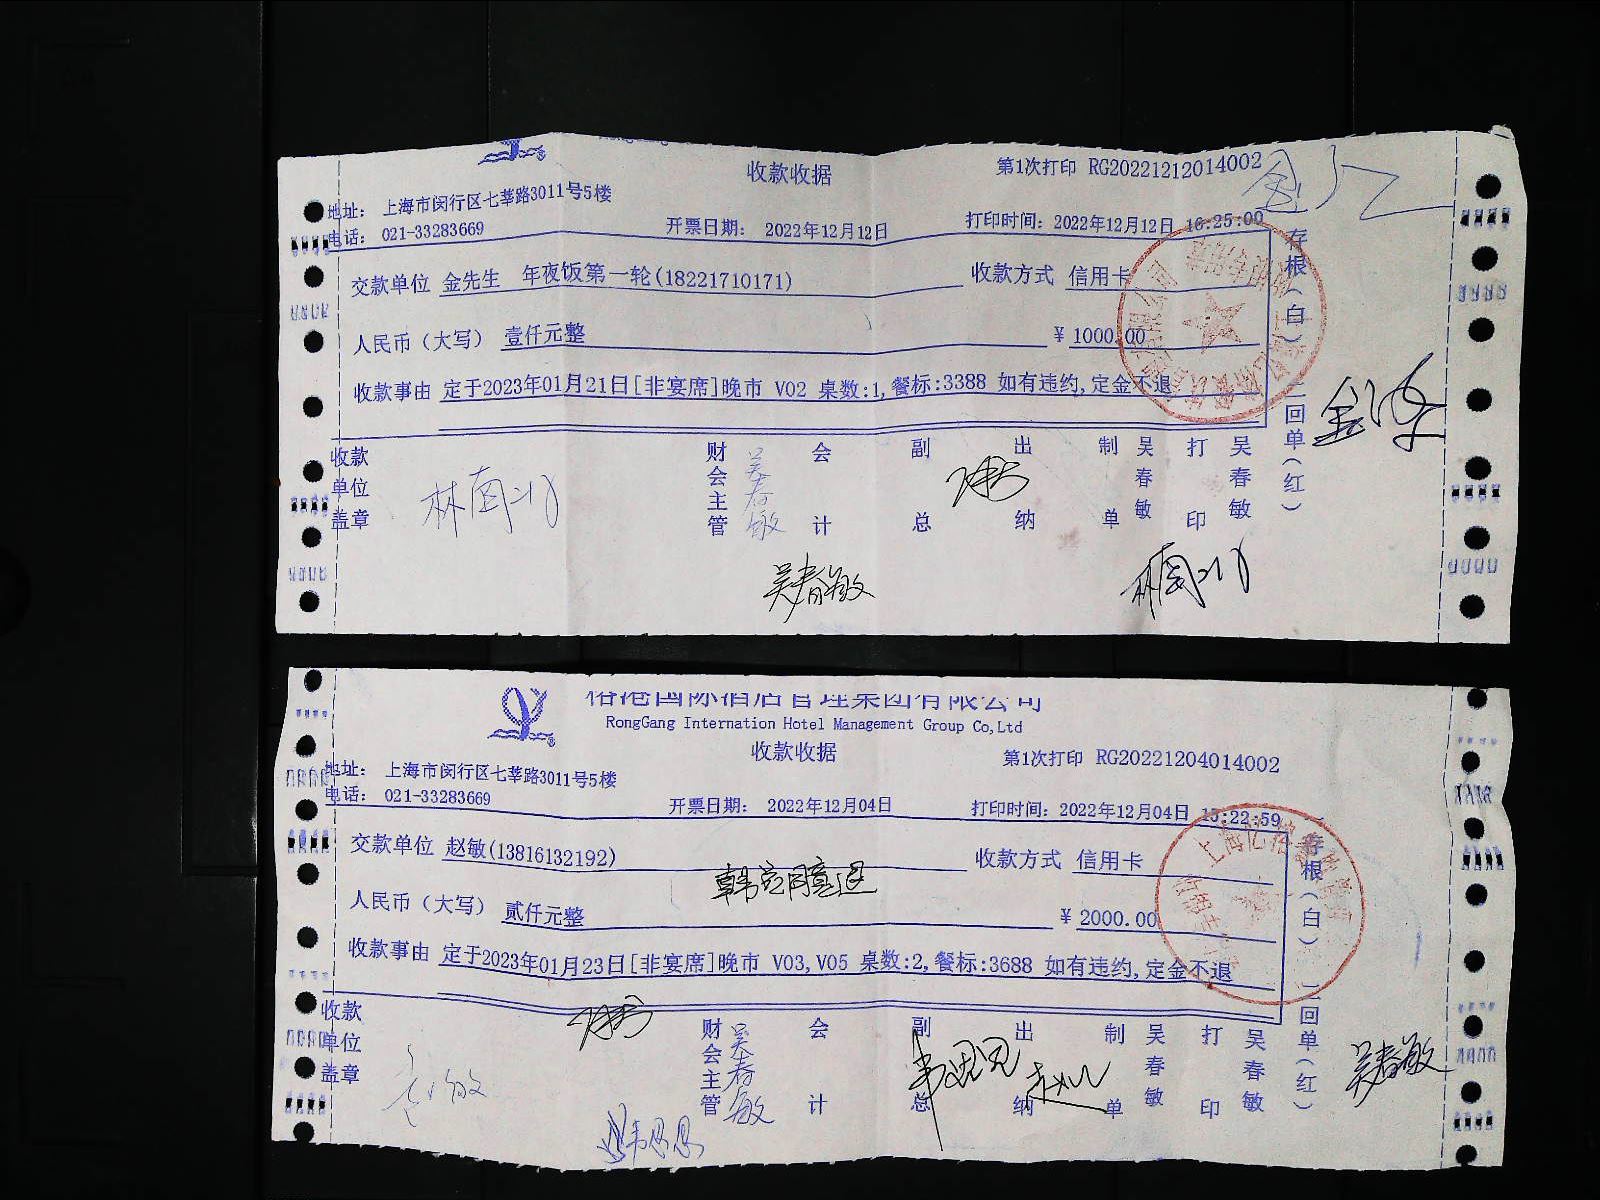 收款收据
第1次打印 RG20221212014002
地址： 上海市闵行区七莘路3011号5楼
电话： 021-33283669
开票日期： 2022年12月12日
打印时间：2022年12月12日 16:25:00
交款单位 金先生 年夜饭第一轮(18221710171)
收款方式 信用卡
人民币（大写） 壹仟元整
￥ 1000.00
收款事由 定于2023年01月21日[非宴席]晚市 V02 桌数:1,餐标:3388 如有违约,定金不退
存根（白）
二回单（红）
收款单位盖章
林南
财会主管
吴春敏
会计
副总
出纳
制单
吴春敏
打印
吴春敏
吴春敏
林南
裕港国际酒店管理集团有限公司
RongGang Internation Hotel Management Group Co,Ltd
收款收据
第1次打印 RG20221204014002
地址： 上海市闵行区七莘路3011号5楼
电话： 021-33283669
开票日期： 2022年12月04日
打印时间：2022年12月04日 15:22:59
交款单位 赵敏(13816132192)
收款方式 信用卡
人民币（大写） 贰仟元整
￥ 2000.00
收款事由 定于2023年01月23日[非宴席]晚市 V03,V05 桌数:2,餐标:3688 如有违约,定金不退
存根（白）
二回单（红）
收款单位盖章
财会主管
吴春敏
会计
副总
出纳
制单
吴春敏
打印
吴春敏
吴春敏